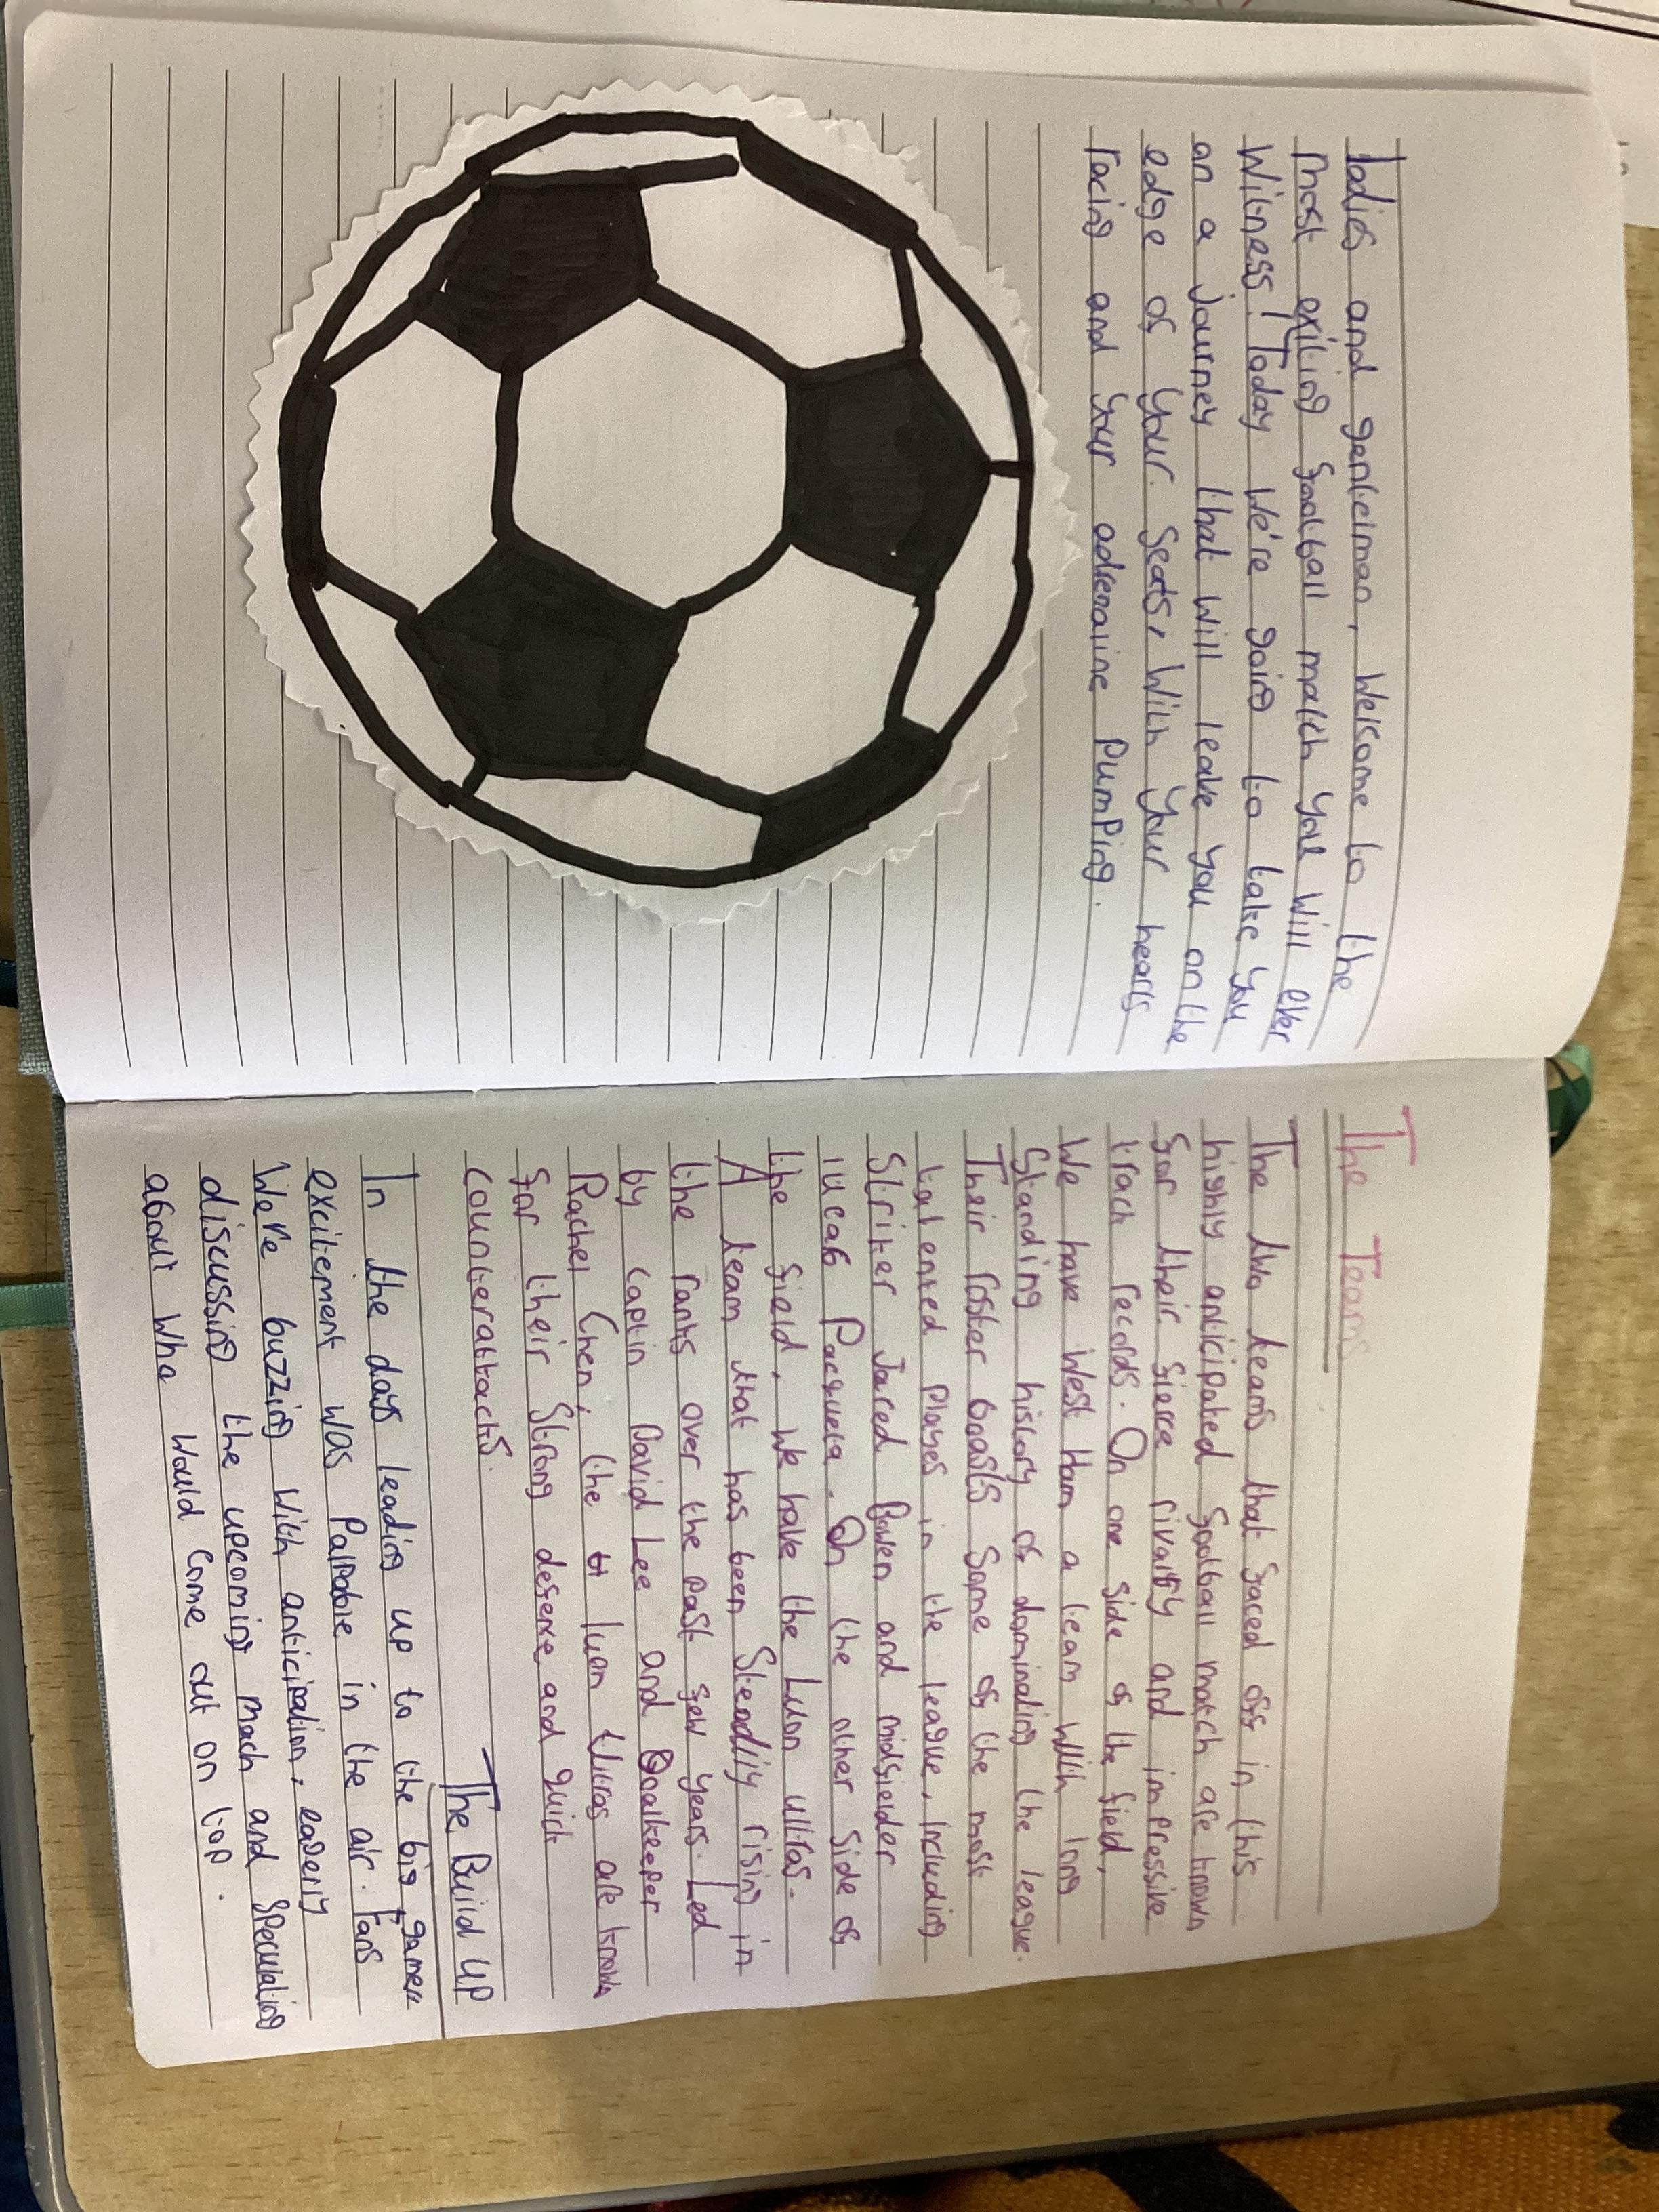 ladies and gentleman, Welcome to the
most exiting football match you will ever
Witness! Today We're going to take you
on a journey that will leave you on the
edge of your seats, With your hearts
racing and your adrenaline Pumping.
The Teams
The two teams that faced off in this
highly anticipated football match are known
for their fierce rivalry and impressive
track records. On one side of the field,
We have West Ham a team With long
Standing history of dominating the league.
Their roster boasts Some of the most
talented Players in the league, including
Striker Jared Bowen and midfielder
lucas Pacqueta. On the other side of
the field, We have the Luton ultras.
A team that has been Steadily rising in
the ranks over the past few years. Led
by captin David Lee and Goalkeeper
Rachel Chen, the luton Ultras are known
for their Strong defence and quick
counterattacks.
The Build UP
In the days leading up to the big game
excitement was Palpable in the air. Fans
Were buzzing With anticipation, eagerly
discussing the upcoming mach and Speculating
about Who Would come out on top.